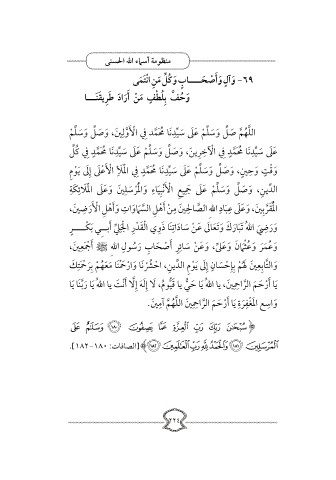 منظومة أسماء الله الحسنى
٦٩- وَآلٍ وَأَصْحَابٍ وَكُلِّ مَنِ انْتَمَى
وَحُفَّ بِلُطْفٍ مَنْ أَرَادَ طَرِيقَنَا
اللَّهُمَّ صَلِّ وَسَلِّمْ عَلَى سَيِّدِنَا مُحَمَّدٍ فِي الْأَوَّلِينَ، وَصَلِّ وَسَلِّمْ عَلَى
سَيِّدِنَا مُحَمَّدٍ فِي الْآخِرِينَ، وَصَلِّ وَسَلِّمْ عَلَى سَيِّدِنَا مُحَمَّدٍ فِي كُلِّ
وَقْتٍ وَحِينٍ، وَصَلِّ وَسَلِّمْ عَلَى سَيِّدِنَا مُحَمَّدٍ فِي الْمَلَأِ الْأَعْلَى إِلَى يَوْمِ
الدِّينِ، وَصَلِّ وَسَلِّمْ عَلَى جَمِيعِ الْأَنْبِيَاءِ وَالْمُرْسَلِينَ وَعَلَى الْمَلَائِكَةِ
الْمُقَرَّبِينَ، وَعَلَى عِبَادِ اللهِ الصَّالِحِينَ مِنْ أَهْلِ السَّمَاوَاتِ وَأَهْلِ الْأَرَضِينَ،
وَرَضِيَ اللهُ تَبَارَكَ وَتَعَالَى عَنْ سَادَاتِنَا ذَوِي الْقَدْرِ الْجَلِيِّ أَبِي بَكْرٍ
وَعُمَرَ وَعُثْمَانَ وَعَلِيٍّ، وَعَنْ سَائِرِ أَصْحَابِ رَسُولِ اللهِ ﷺ أَجْمَعِينَ،
وَالتَّابِعِينَ لَهُمْ بِإِحْسَانٍ إِلَى يَوْمِ الدِّينِ، احْشُرْنَا وَارْحَمْنَا مَعَهُمْ بِرَحْمَتِكَ
يَا أَرْحَمَ الرَّاحِمِينَ، يا اللهُ يَا حَيُّ يَا قَيُّومُ، لَا إِلَهَ إِلَّا أَنْتَ يَا اللهُ يَا رَبَّنَا يَا
وَاسِعَ الْمَغْفِرَةِ يَا أَرْحَمَ الرَّاحِمِينَ اللَّهُمَّ آمِينَ.
﴿سُبْحَانَ رَبِّكَ رَبِّ الْعِزَّةِ عَمَّا يَصِفُونَ ١٨٠ وَسَلَامٌ عَلَى
الْمُرْسَلِينَ ١٨١ وَالْحَمْدُ لِلَّهِ رَبِّ الْعَالَمِينَ ١٨٢﴾ [الصافات: ١٨٠-١٨٢].
٢٢٤